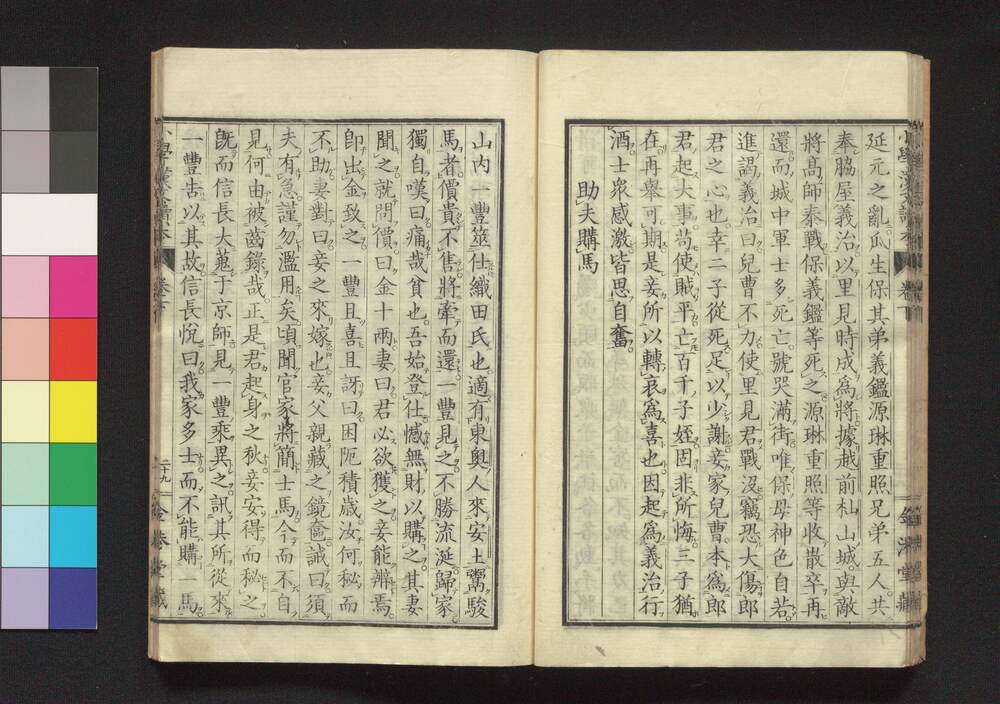 延元之亂瓜生保其弟義鑑源琳重照兄弟五人共
奉脇屋義治以里見時成爲將據越前杣山城與敵
將高師泰戰保義鑑等死之源琳重照等收散卒再
還而城中軍士多死亡號哭滿街唯保母神色自若
進謁義治曰兒曹不力使里見君戰沒竊恐大傷郎
君之心也幸二子從死足以少謝妾家兒曹本爲郎
君起大事苟使賊平亡百千子姪固非所悔三子猶
在再舉可期是妾所以轉哀爲喜也因起爲義治行
酒士衆感激皆思自奮
助夫購馬
山内一豐筮仕織田氏也適有東奧人來安土鬻駿
馬者價貴不售將牽而還一豐見之不勝流涎歸家
獨自嘆曰痛哉貧也吾始登仕憾無財以購之其妻
聞之就問價曰金十兩妻曰君必欲獲之妾能辨焉
卽出金致之一豐且喜且訝曰困阨積歲汝何秘而
不助妻對曰妾之來嫁也妾父親藏之鏡奩誡曰須
夫有急謹勿濫用矣頃聞官家將簡士馬今而不自
見何由被齒錄哉正是君起身之秋妾安得而秘之
旣而信長大蒐于京師見一豐乘異之訊其所從來
一豐告以其故信長悅曰我家多士而不能購一馬